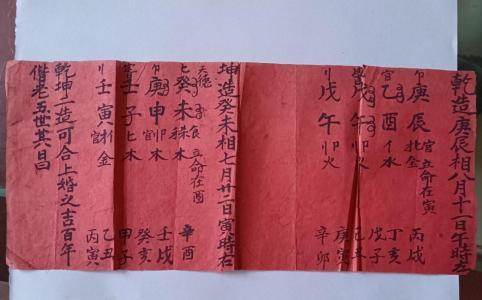 乾造庚辰相八月十一日午時左
庚辰 官 金
立命在寅
官
乙酉 水
午 火
戊午 火
丙戌
丁亥
戊子
己丑
庚寅
辛卯
坤造癸未相七月廿二日寅時右
天德
癸未 木
立命在酉
庚申 木
壬子 木
壬寅 金
辛酉
壬戌
癸亥
甲子
乙丑
丙寅
乾坤二造可合上婚之吉百年
偕老五世其昌